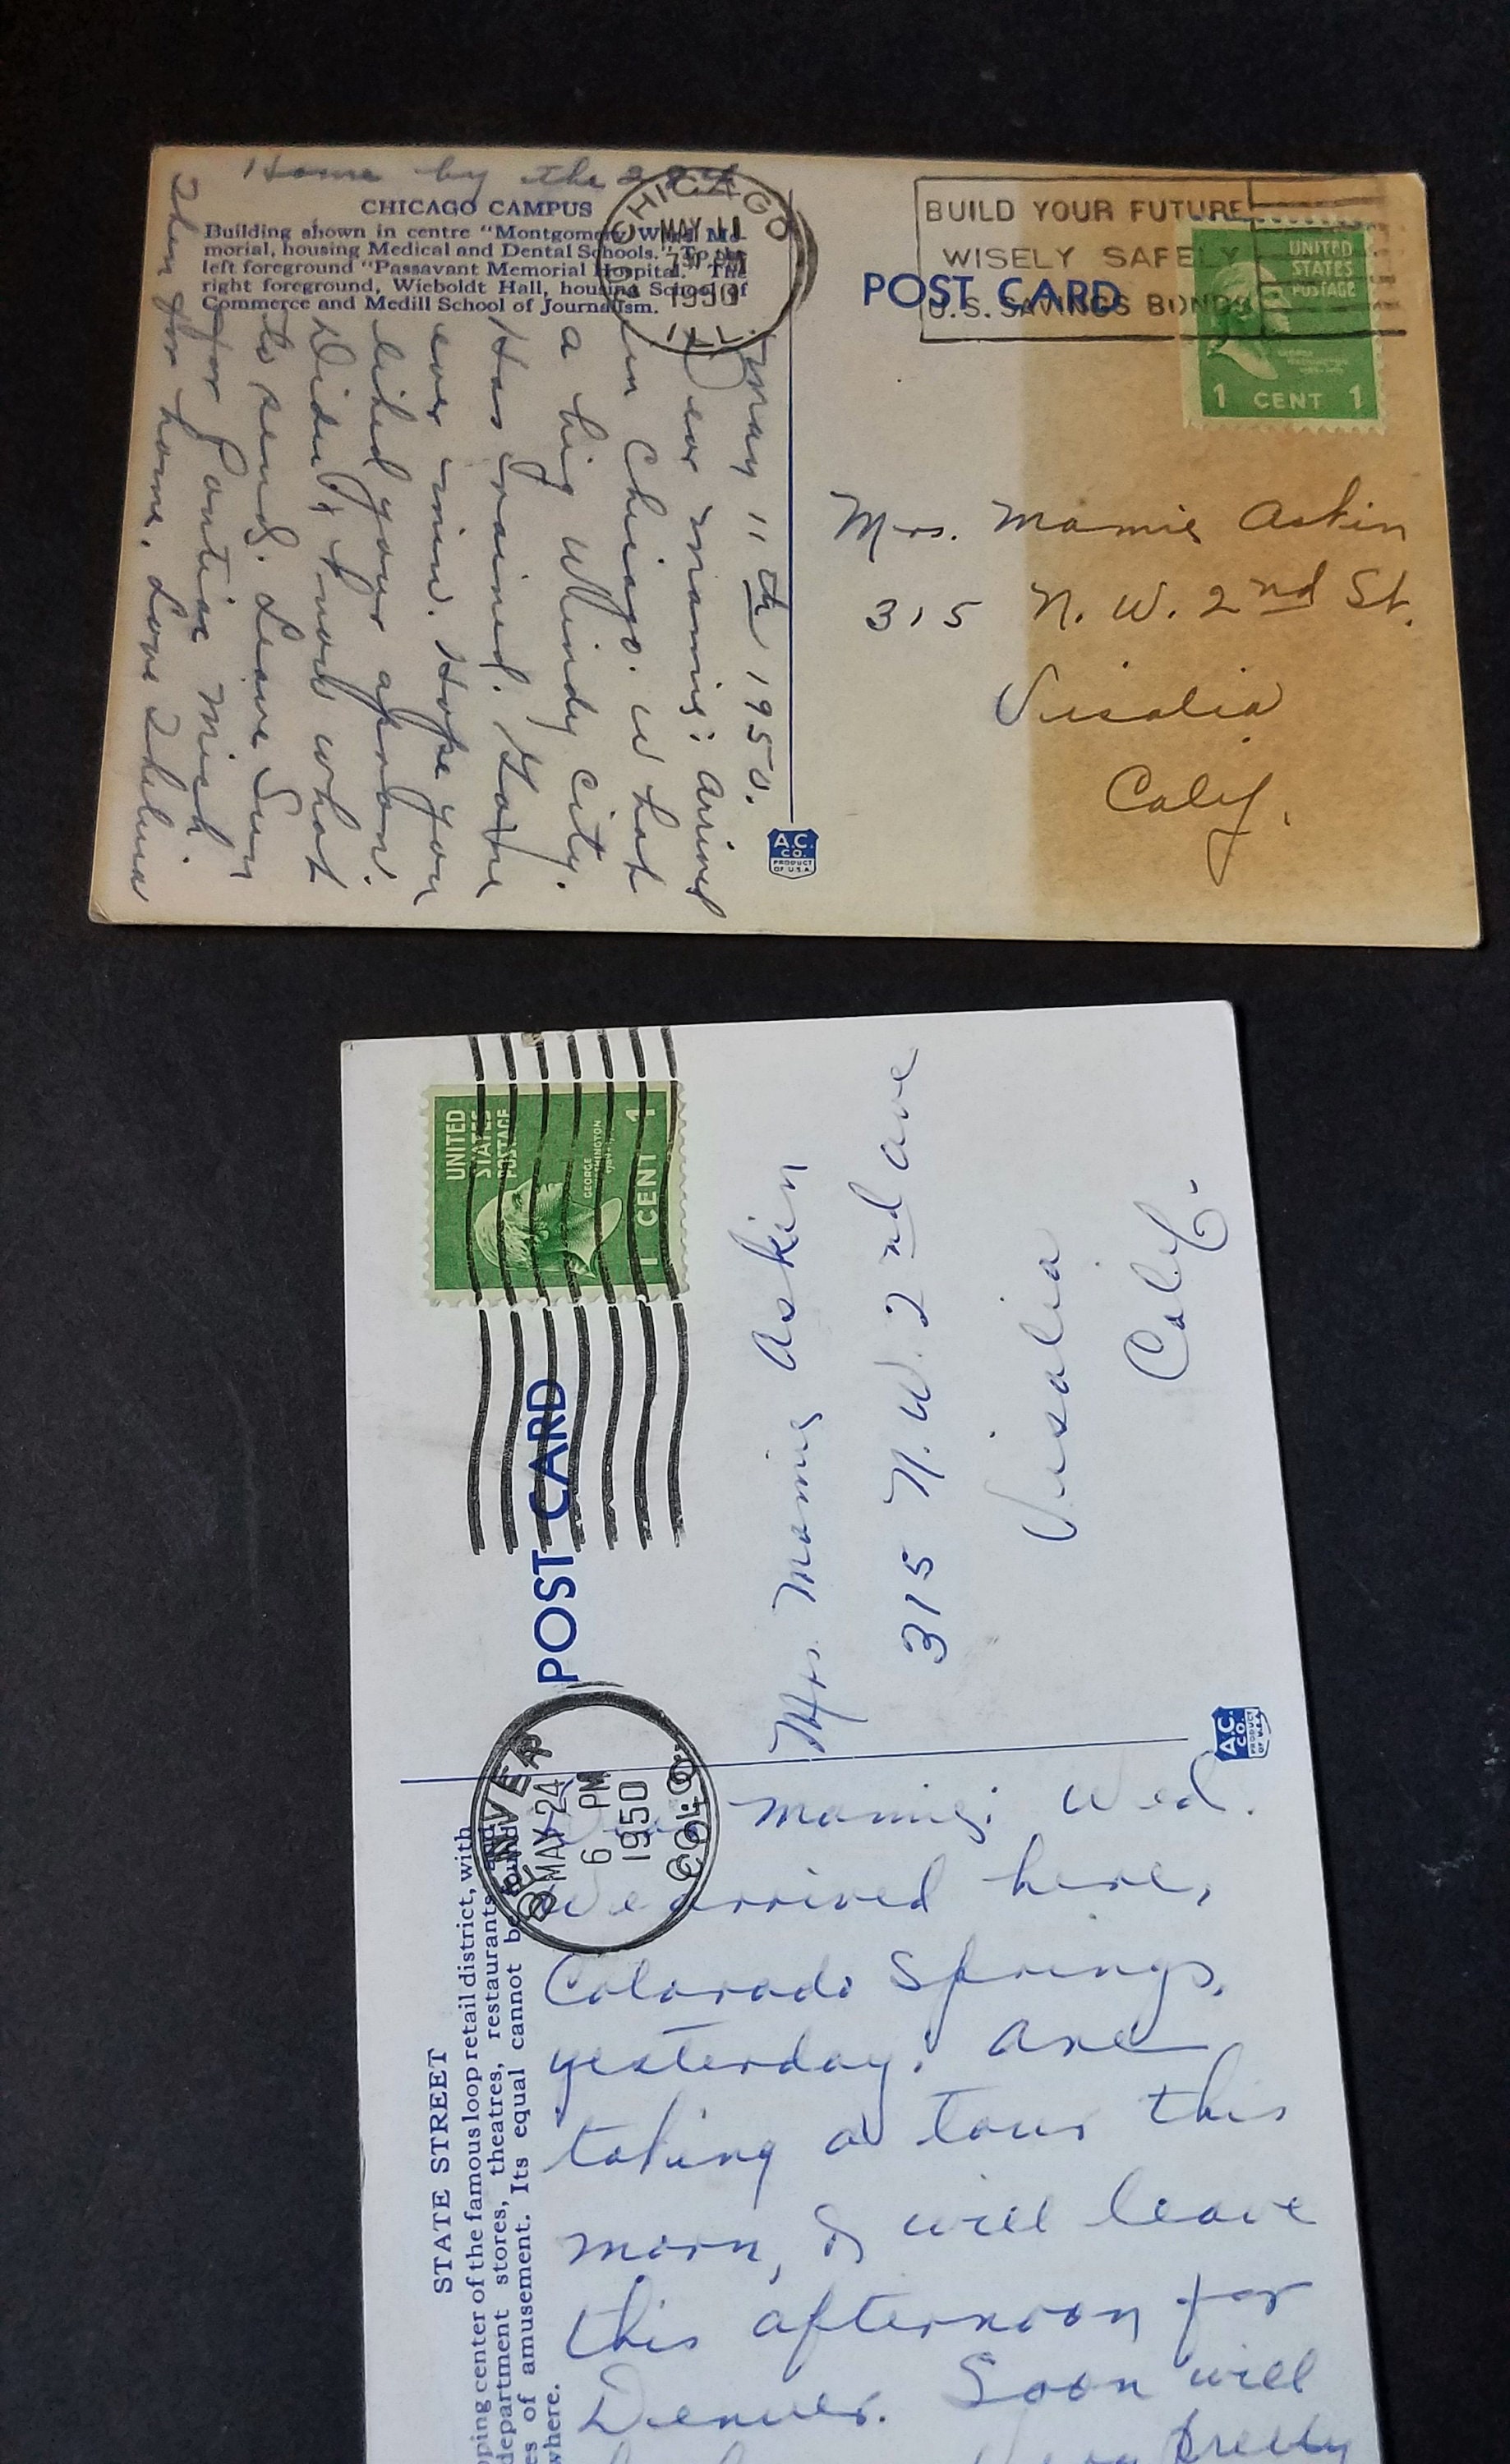 Home by the 28th
CHICAGO CAMPUS
Building shown in centre "Montgomery Ward Me-
morial, housing Medical and Dental Schools." To the
left foreground "Passavant Memorial Hospital." The
right foreground, Wieboldt Hall, housing School of
Commerce and Medill School of Journalism.
CHICAGO
MAY 11
7 PM
1950
ILL.
May 11th 1950.
Dear Mamie: Arrived
in Chicago. What
a big Whindy City.
Has rained.
ever since. Hope you
liked your apron.
Didn't know what
to send. Leave Sun
for Pontiac Mich.
Then for home. Love Thelma
BUILD YOUR FUTURE
WISELY SAFELY
U.S. SAVINGS BONDS
POST CARD
UNITED
STATES
POSTAGE
GEORGE
WASHINGTON
1 CENT 1
Mrs. Mamie Askin
315 N. W. 2nd St.
Visalia
Calif.
A.C.
CO.
PRODUCT
OF U.S.A.
UNITED
STATES
POSTAGE
GEORGE
WASHINGTON
1 CENT 1
POST CARD
Mrs. Mamie Askin
315 N. W. 2nd Ave
Visalia
Calif.
A.C.
CO.
PRODUCT
OF U.S.A.
DENVER
MAY 24
6 PM
1950
COLO.
STATE STREET
pping center of the famous loop retail district, with
department stores, theatres, restaurants and
es of amusement. Its equal cannot be found
where.
Dear Mamie: Wed.
We arrived here,
Colorado Springs,
yesterday. Are
taking a tour this
morn, & will leave
this afternoon for
Denver. Soon will
pretty